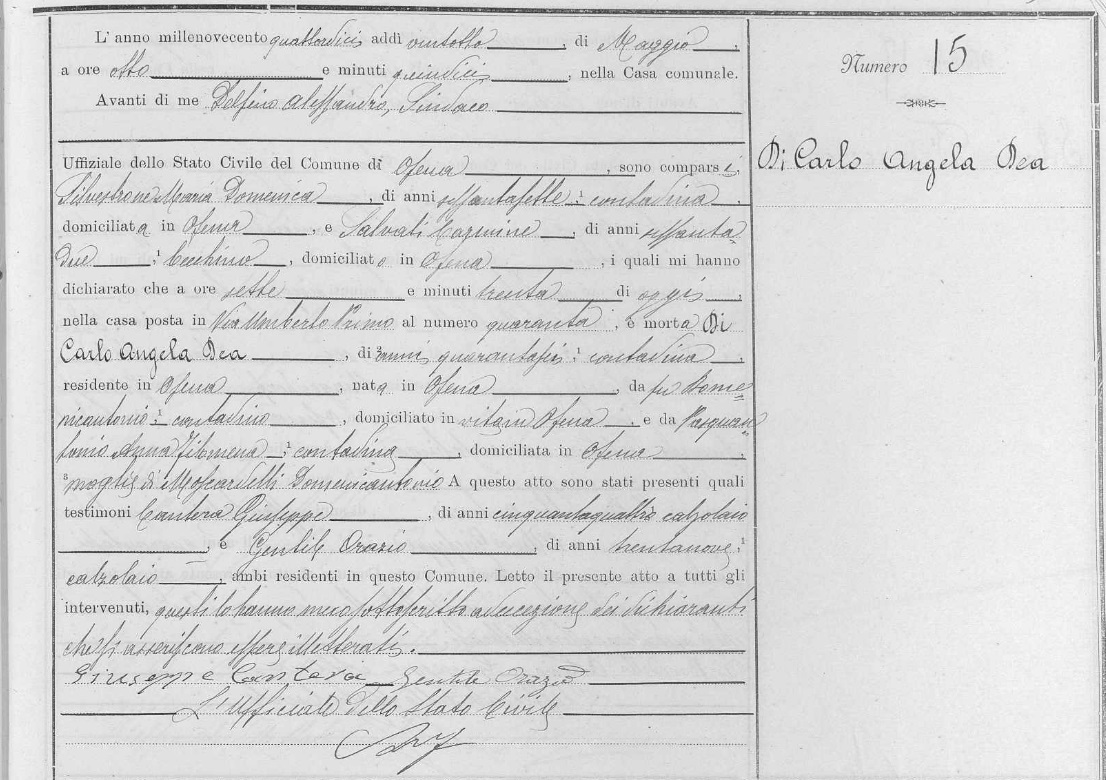 L'anno millenovecento quattordici addì ventotto, di Maggio,
a ore otto e minuti quindici, nella Casa comunale.
Avanti di me Delfino Alessandro, Sindaco
Uffiziale dello Stato Civile del Comune di Ofena, sono comparsi,
Silvestrone Maria Domenica, di anni sessantasette; contadina
domiciliata in Ofena, e Salvati Carmine, di anni sessanta=
due; becchino, domiciliato in Ofena, i quali mi hanno
dichiarato che a ore sette e minuti trenta di oggi,
nella casa posta in Via Umberto Primo al numero quaranta, è morta Di
Carlo Angela Dea, di anni quarantasei; contadina,
residente in Ofena, nata in Ofena, da fu Dome=
nicantonio; contadino, domiciliato in vita in Ofena, e da
Anna Filomena; contadina, domiciliata in Ofena,
moglie di Moscardelli Domenicantonio A questo atto sono stati presenti quali
testimoni Cantera Giuseppe, di anni cinquantaquattro calzolaio
, e Gentile Orazio, di anni trentanove;
calzolaio, ambi residenti in questo Comune. Letto il presente atto a tutti gli
intervenuti, questi lo hanno meco sottoscritto ad eccezione dei dichiaranti
che si asseriscono essere illetterati.
Giuseppe Cantera Gentile Orazio
L'Ufficiale dello Stato Civile
Numero 15
Di Carlo Angela Dea